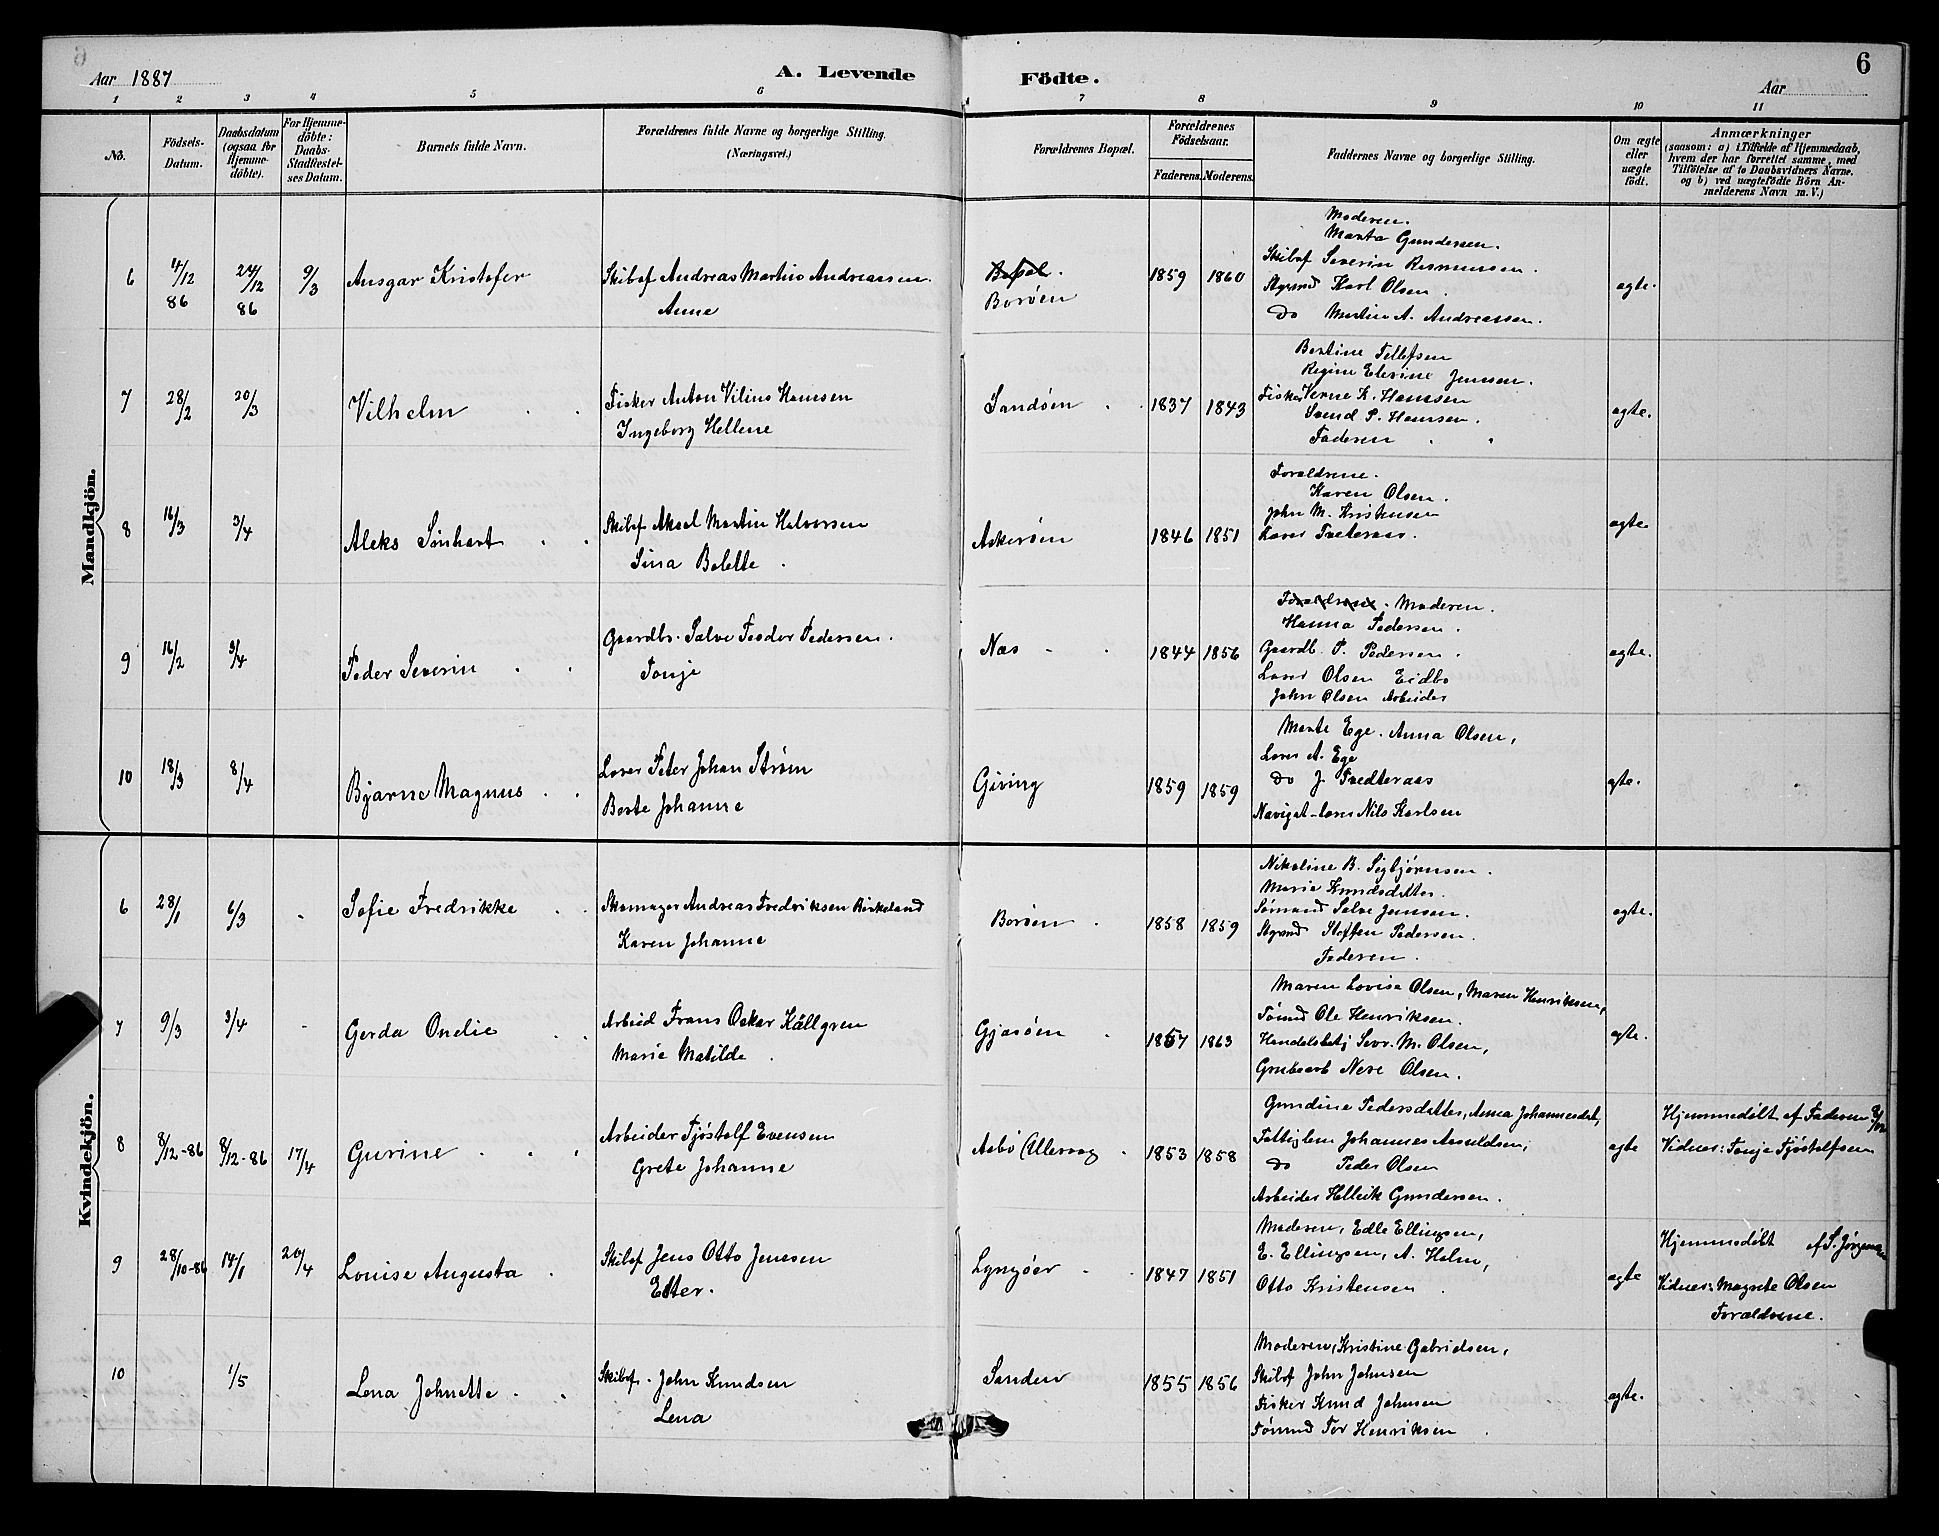 6
Aar 1887
A. Levende
Födte.
Aar
1 2 3 4 5 6 7 8 9 10 11
No.
Födsels-
Datum.
Daabsdatum
(ogsaa for
Hjemme-
døbte).
For Hjemme-
döbte:
Daabs-
Stadfæstel-
ses Datum.
Barnets fulde Navn.
Forældrenes fulde Navne og borgerlige Stilling.
(Næringsvei.)
Forældrenes Bopæl.
Forældrenes
Födselsaar.
Faderens.
Moderens.
Faddernes Navne og borgerlige Stilling.
Om ægte
eller
uægte
födt.
Anmærkninger
(saasom: a) i Tilfælde af Hjemmedaab,
hvem der har forrettet samme, med
Tilföielse af to Daabsvidners Navne,
og b) ved uægtefödte Börn An-
melderens Navn m. V.)
Mandkjön.
6
4/12
86
24/12
86
9/3
Ansgar Kristofer
Skibsf Andreas Martius Andreassen
Anne
Bopæl.
Borøen
1859
1860
Moderen.
Marta Gundersen.
Skibsf Severin Rasmussen.
Styrmd Karl Olsen.
Do Martin A. Andreassen.
ægte.
7
28/2
20/3
Vilhelm
Fisker Anton Vilius Hansen
Ingeborg Hellene
Sandøen
1837
1843
Bertine Tellefsen
Regine Elevine Jensen.
Fisker Verne K. Hansen
Svend P. Hansen.
Faderen
ægte.
8
16/3
3/4
Aleks Sinhart
Skibsf Aksel Martin Halvorsen
Sina Bolette.
Askerøen
1846
1851
Forældrene.
Karen Olsen.
John M. Kristensen
Lærer Træteraas.
ægte.
9
16/2
3/4
Peder Severin
Gaardbr. Salve Teodor Pedersen.
Tonje
Næs
1844
1856
Forældrene. Moderen.
Hanna Pedersen.
Gaardb. P. Pedersen.
Lærer Olsen Eidbo
John Olsen Arbeider
ægte.
10
18/3
8/4
Bjarne Magnus
Lærer Peter Johan Strøm
Berte Johanne
Giving
1859
1859
Marte Ege. Anna Olsen,
Lærer A. Ege
Do J. Trædteraas
Navigat-lærer Nils Karlsen
ægte.
Kvindekjön.
6
28/1
6/3
Sofie Fredrikke
Skomager Andreas Fredriksen Birkeland
Karen Johanne
Borøen
1858
1859
Nikoline B. Sigbjørnsen.
Maria Knudsdatter.
Sømand Salve Jensen.
Styrmd Steffen Pedersen.
Faderen.
ægte.
7
9/3
3/4
Gerda Onelie
Arbeid Frans Oskar Källgren
Marie Matilde.
Gjæsøen
1857
1863
Maren Lovise Olsen, Maren Henriksen,
Tømmd Ole Henriksen.
Handelsbetj Sevr. M. Olsen,
Grubearb Nere Olsen.
ægte.
8
8/12-86
8/12-86
17/4
Gurine
Arbeider Tjøstolf Evensen
Grete Johanne
Aasbø Allevaag
1853
1858
Gundine Pedersdatter, Anna Johannesdat,
Fattiglem Johannes Asmeldsen,
Do Peder Olsen
Arbeider Helleik Gundersen.
ægte
Hjemmedøbt af Faderen 8/12
Vidner: Tonje Tjøstolfsen
9
28/10-86
14/1
20/4
Louise Augusta
Skibsf Jens Otto Jensen
Etter.
Lyngøer
1847
1851
Moderen, Edle Ellingsen,
E. Ellingsen, A. Holm,
Otto Kristensen
ægte
Hjemmedøbt af S. Jørgensen
Vidner: Magrete Olsen
Forældrene.
10
1/5
Lena Johnette
Skibsf. John Knudsen
Lena
Sanden
1855
1856
Moderen, Kristine Gabrielsen,
Skibsf John Johnsen
Fisker Knud Johnsen
Tømmd Tor Henriksen
ægte.